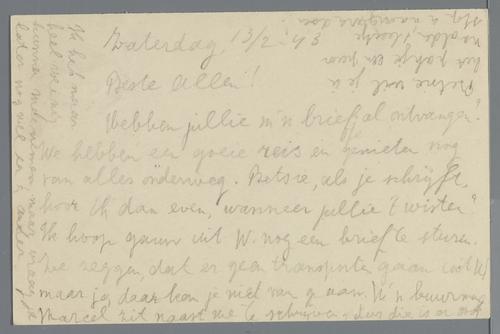 Zaterdag 13/2-43
Beste Allen!
Hebben jullie m'n brief al ontvangen?
We hebben een goeie reis en genieten nog
van alles onderweg. Betsie, als je schrijft,
hoor ik dan even, wanneer jullie 't wisten?
Ik hoop gauw uit W. nog een brief te sturen.
Ze zeggen, dat er geen transporten gaan uit W.
maar ja, daar kan je niet van op aan. M'n buurman
Marcel zit naast me te schrijven, dus die is er ook
Ik heb maar
heel weinig
kunnen meenemen, maar
laten nog veel
Betsie wil je
het pakje een paar